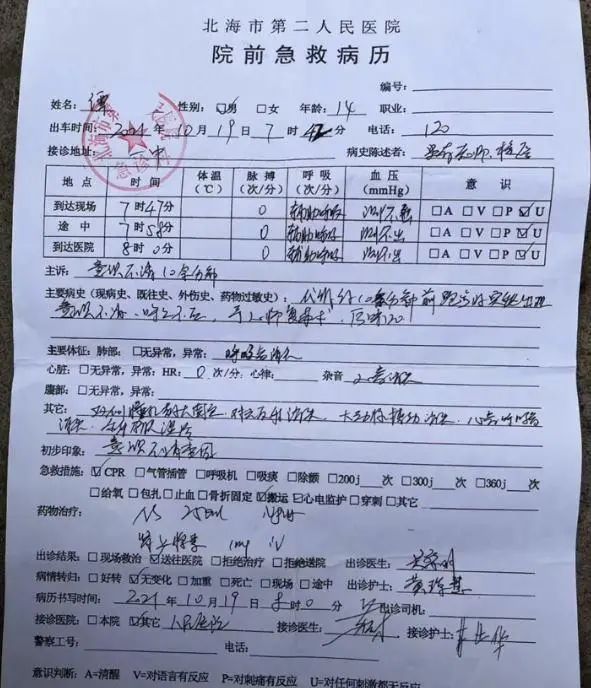 北海市第二人民医院
院前急救病历
编号:
姓名: 谭 性别: ☑男 □女 年龄: 14 职业:
出车时间: 2021年10月19日7时42分 电话: 120
接诊地址: 一中 病史陈述者: 老师、校医
地点 时间 体温(℃) 脉搏(次/分) 呼吸(次/分) 血压(mmHg) 意识
到达现场 7时47分 0 辅助呼吸 测不出 □A □V □P ☑U
途中 7时58分 0 辅助呼吸 测不出 □A □V □P ☑U
到达医院 8时0分 0 辅助呼吸 测不出 □A □V □P ☑U
主诉: 意识不清10余分钟
主要病史(现病史、既往史、外伤史、药物过敏史): 代诉约10余分钟前跑步时突然出现
意识不清、呼之不应
主要体征: 肺部: □无异常, 异常: 呼吸音消失
心脏: □无异常, 异常: HR: 0次/分; 心律: 杂音 心音消失
腹部: □无异常, 异常:
其它: 双侧瞳孔散大固定, 对光反射消失, 大动脉搏动消失
消失, 湿冷
初步印象: 意识不清查因
急救措施: ☑CPR □气管插管 □呼吸机 □吸痰 □除颤 □200j 次 □300j 次 □360j 次
□给氧 □包扎 □止血 □骨折固定 ☑搬运 ☑心电监护 □穿刺 □其它
药物治疗: NS 250ml
肾上腺素 1mg iv
出诊结果: □现场救治 ☑送往医院 □拒绝治疗 □拒绝送院 出诊医生:
病情转归: □好转 ☑无变化 □加重 □死亡 □现场 □途中 出诊护士:
病历书写时间: 2021年10月19日8时0分 出诊司机:
接诊医院: □本院 ☑其它 人民医院 接诊医生: 接诊护士:
警察工号: 电话:
意识判断: A=清醒 V=对语言有反应 P=对刺痛有反应 U=对任何刺激都无反应